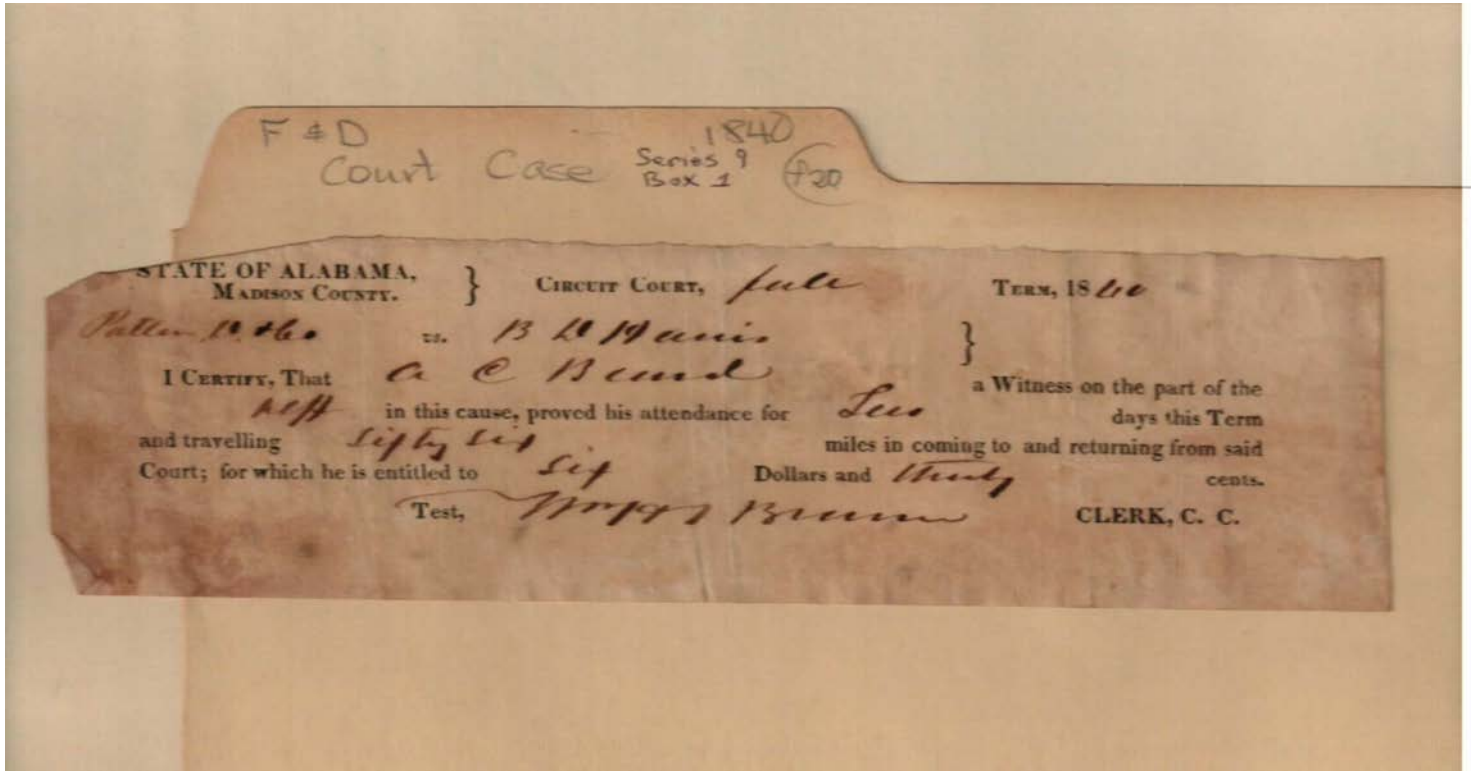 F & D 1840
Court Case Series 9
Box 1 f20
STATE OF ALABAMA, } CIRCUIT COURT, TERM, 1840
MADISON COUNTY.
vs. B }
I CERTIFY, That A C Beard a Witness on the part of the
in this cause, proved his attendance for days this Term
and travelling fifty six miles in coming to and returning from said
Court; for which he is entitled to six Dollars and thirty cents.
Test, Brown CLERK, C. C.